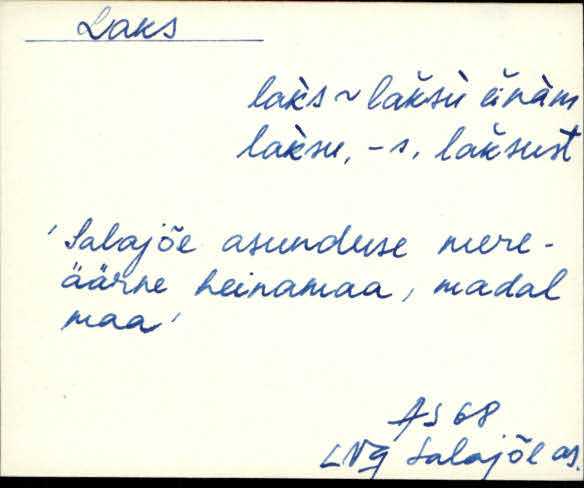 Laks
làks ~ làksù èinàm
làksu, -s, làksust
'Salajõe asunduse mere-
äärne heinamaa, madal
maa'
AS 68
LNg Salajõe as.